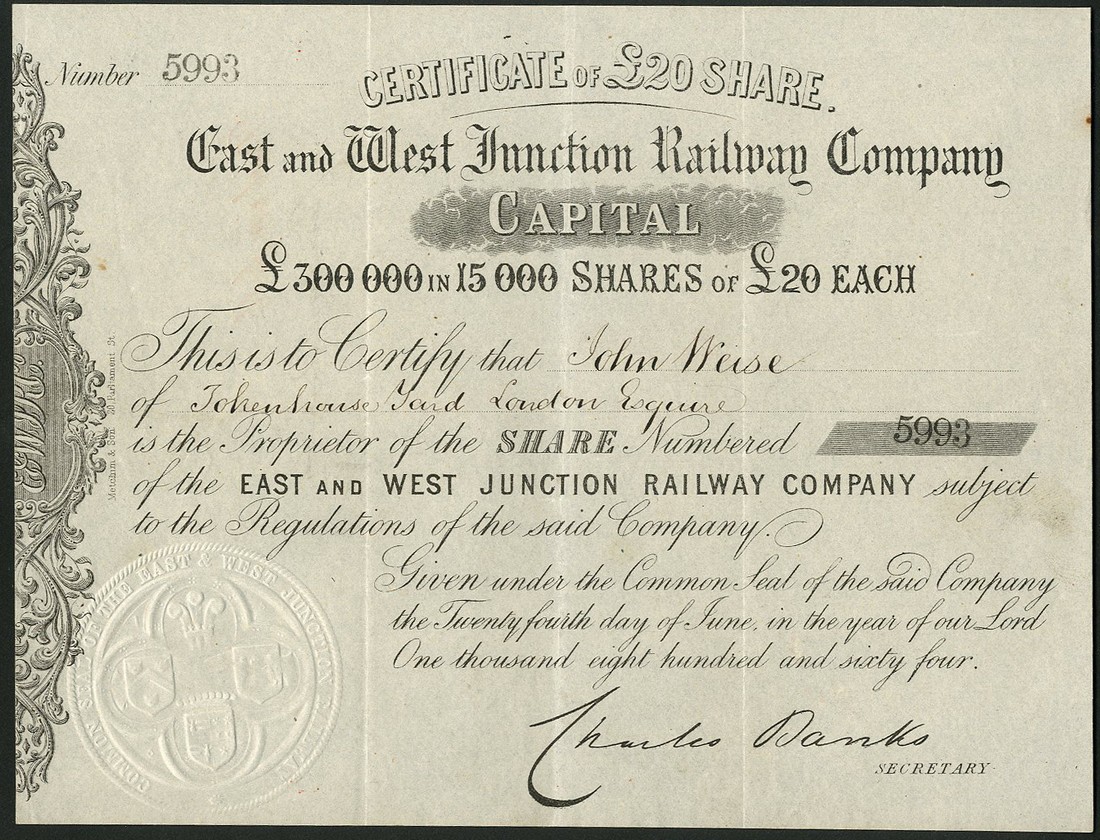 Number 5993
CERTIFICATE OF £20 SHARE.
East and West Junction Railway Company
CAPITAL
£300 000 IN 15 000 SHARES OF £20 EACH
This is to Certify that John Weise
of Tokenhouse Yard London Esquire
is the Proprietor of the SHARE Numbered 5993
of the EAST AND WEST JUNCTION RAILWAY COMPANY subject
to the Regulations of the said Company.
Given under the Common Seal of the said Company
the Twenty fourth day of June, in the year of our Lord
One thousand eight hundred and sixty four.
Charles Banks
SECRETARY
Metchim & Son 20, Parliament St.
COMMON SEAL OF THE EAST & WEST JUNCTION RAILWAY COMPANY